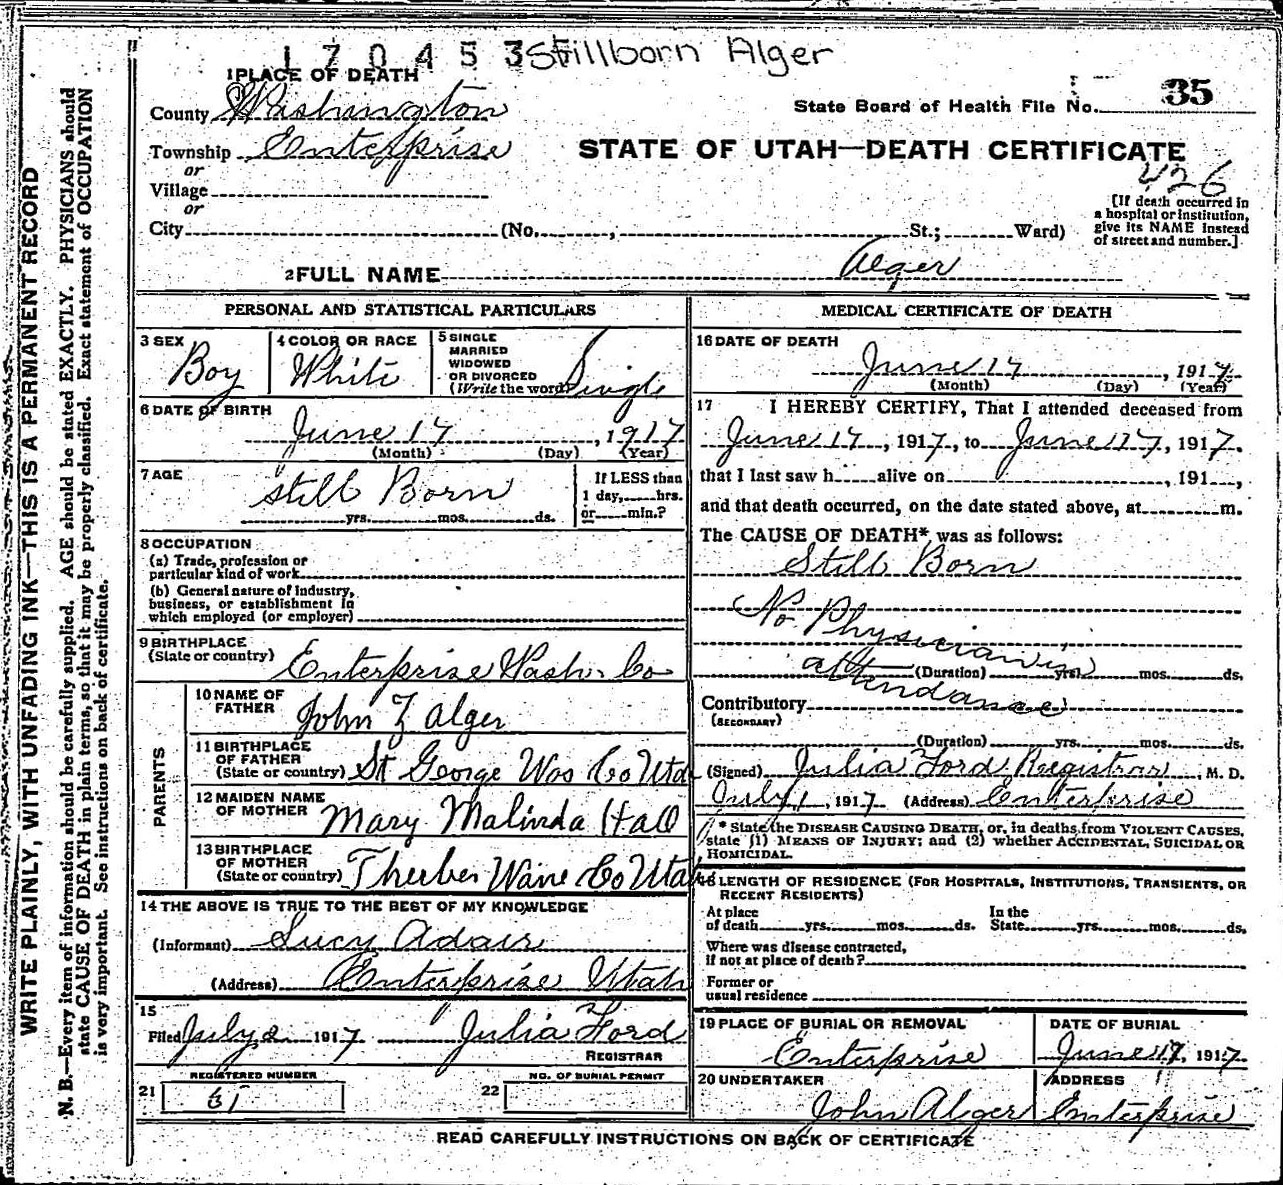 1 7 0 4 5 3 Stillborn Alger
1 PLACE OF DEATH
County Washington
State Board of Health File No. 35
Township Enterprise
STATE OF UTAH—DEATH CERTIFICATE
or
426
Village
or
City (No. , St.; Ward)
[If death occurred in
a hospital or institution,
give its NAME instead
of street and number.]
2 FULL NAME Alger
PERSONAL AND STATISTICAL PARTICULARS
3 SEX Boy
4 COLOR OR RACE White
5 SINGLE
MARRIED
WIDOWED
OR DIVORCED
(Write the word) Single
6 DATE OF BIRTH
June 17, 1917
(Month) (Day) (Year)
7 AGE
Still Born
yrs. mos. ds.
If LESS than
1 day, hrs.
or min.?
8 OCCUPATION
(a) Trade, profession or
particular kind of work
(b) General nature of industry,
business, or establishment in
which employed (or employer)
9 BIRTHPLACE
(State or country) Enterprise Wash. Co
PARENTS
10 NAME OF
FATHER John Z Alger
11 BIRTHPLACE
OF FATHER
(State or country) St George Was Co Utah
12 MAIDEN NAME
OF MOTHER Mary Malinda Hall
13 BIRTHPLACE
OF MOTHER
(State or country) Therber Wane Co Utah
14 THE ABOVE IS TRUE TO THE BEST OF MY KNOWLEDGE
(Informant) Lucy Adair
(Address) Enterprise Utah
15
Filed July 2 1917 Julia Ford
REGISTRAR
REGISTERED NUMBER
21
NO. OF BURIAL PERMIT
22
MEDICAL CERTIFICATE OF DEATH
16 DATE OF DEATH
June 17, 1917
(Month) (Day) (Year)
17 I HEREBY CERTIFY, That I attended deceased from
June 17, 1917, to June 17, 1917.
that I last saw h alive on , 191 ,
and that death occurred, on the date stated above, at m.
The CAUSE OF DEATH* was as follows:
Still Born
No Physician in
attendance
(Duration) yrs. mos. ds.
Contributory
(SECONDARY)
(Duration) yrs. mos. ds.
(Signed) Julia Ford Registrar, M. D.
July 1, 1917 (Address) Enterprise
* State the DISEASE CAUSING DEATH, or, in deaths from VIOLENT CAUSES,
state (1) MEANS OF INJURY; and (2) whether ACCIDENTAL, SUICIDAL OR
HOMICIDAL.
18 LENGTH OF RESIDENCE (FOR HOSPITALS, INSTITUTIONS, TRANSIENTS, OR
RECENT RESIDENTS)
At place
of death yrs. mos. ds.
In the
State yrs. mos. ds.
Where was disease contracted,
if not at place of death?
Former or
usual residence
19 PLACE OF BURIAL OR REMOVAL
Enterprise
DATE OF BURIAL
June 17, 1917
20 UNDERTAKER
John Alger
ADDRESS
Enterprise
READ CAREFULLY INSTRUCTIONS ON BACK OF CERTIFICATE
WRITE PLAINLY, WITH UNFADING INK—THIS IS A PERMANENT RECORD
N. B.—Every item of information should be carefully supplied. AGE should be stated EXACTLY. PHYSICIANS should
state CAUSE OF DEATH in plain terms, so that it may be properly classified. Exact statement of OCCUPATION
is very important. See instructions on back of certificate.